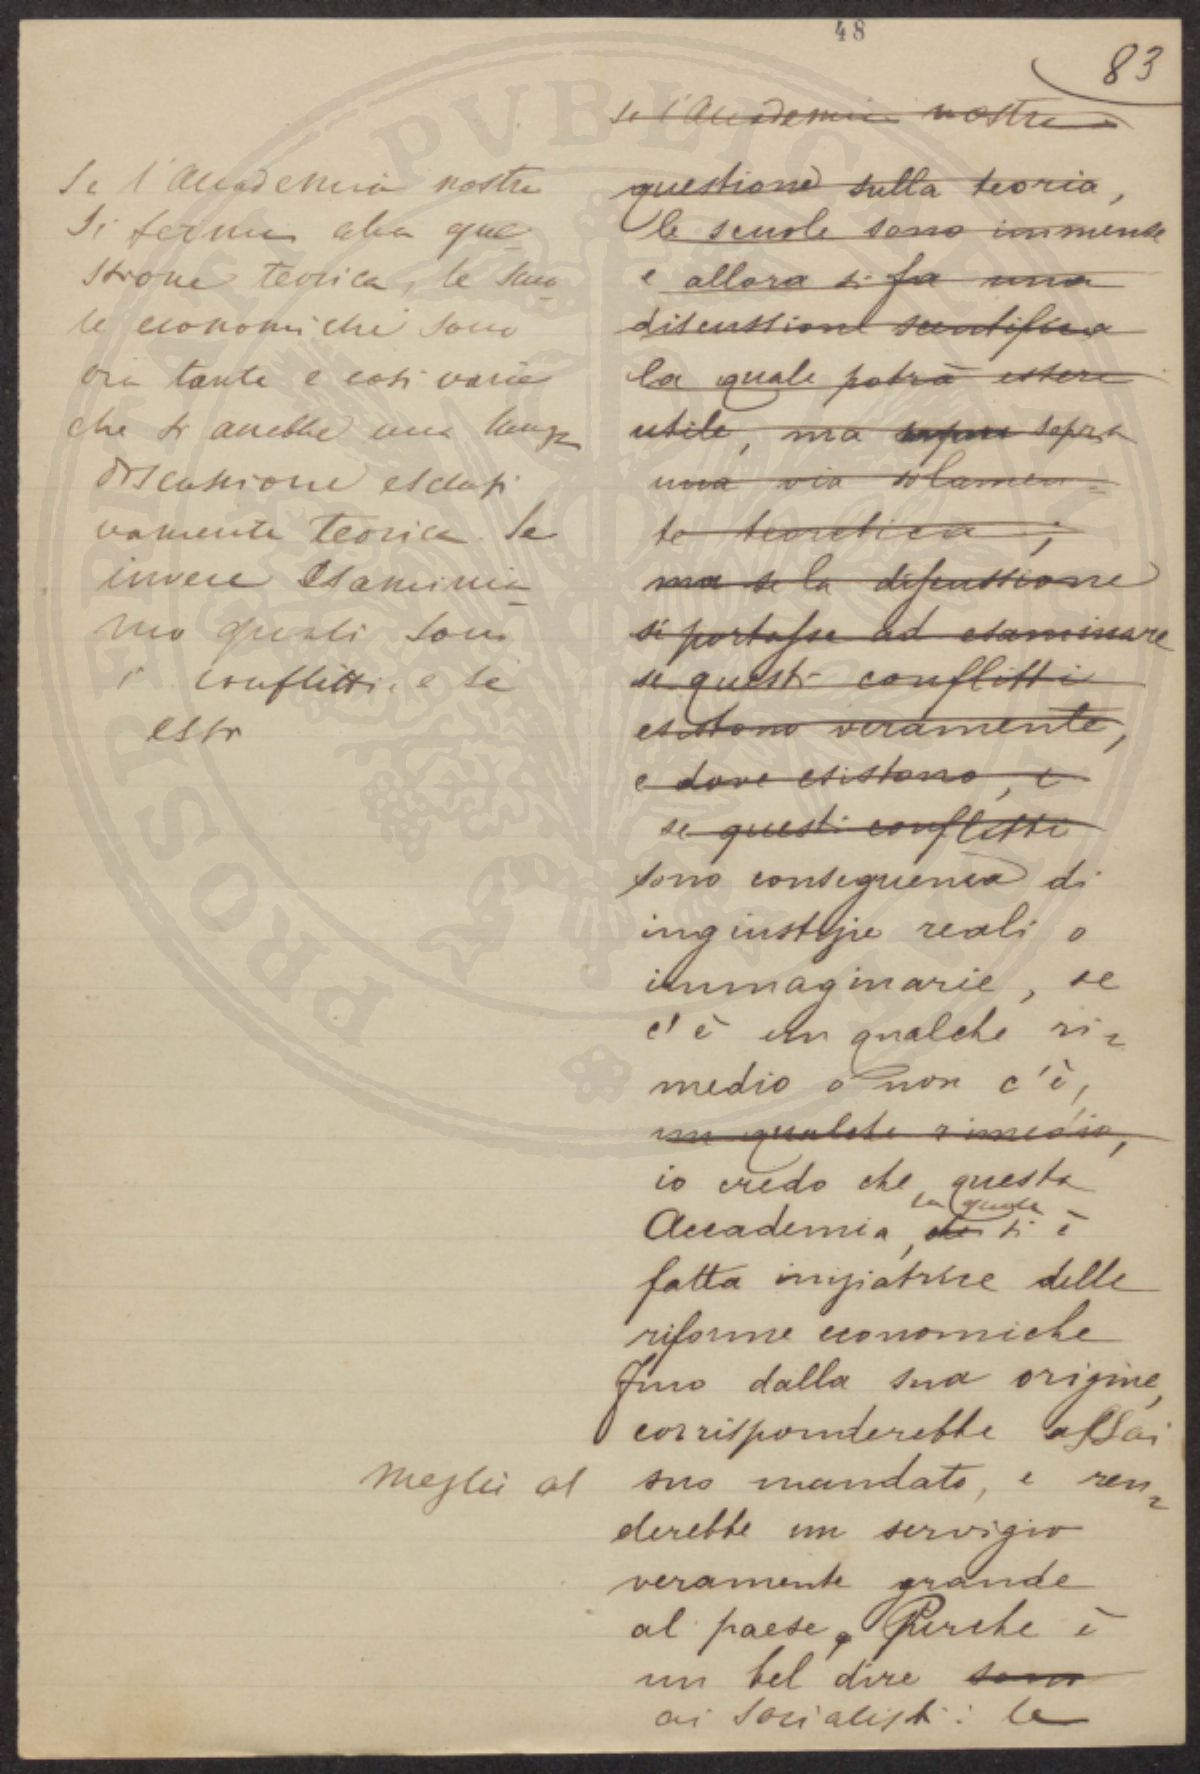 48
83
se l'Accademia nostra
Se l'Accademia nostra
si ferma alla que=
stione teorica, le scuo=
le economiche sono
ora tante e così varie
che si avrebbe una lunga
discussione esclusi
vamente teorica. Se
invece esaminia=
mo quali sono
i conflitti, e se
essi
questione sulla teoria,
le scuole sono immense
e allora si fa una
discussione scientifica
la quale potrà essere
utile, ma sopra
una via solamen=
te teoretica;
ma se la discussione
si portasse ad esaminare
se questi conflitti
esistono veramente,
e dove esistono, e
se questi conflitti
sono conseguenza di
ingiustizie reali o
immaginarie, se
c'è un qualche ri=
medio o non c'è,
un qualche rimedio,
io credo che questa
la quale
Accademia, che si è
fatta iniziatrice delle
riforme economiche
fino dalla sua origine,
corrisponderebbe assai
meglio al suo mandato, e ren=
derebbe un servigio
veramente grande
al paese. Perchè è
un bel dire sono
ai socialisti: le
PROSPERITAS PVBLICA